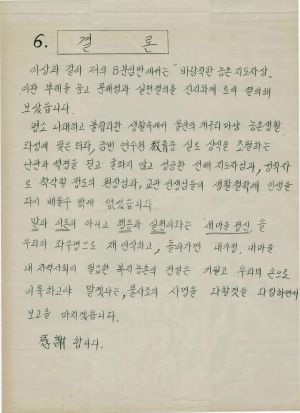 6. 결 론
이상과 같이 저의 8분임반에서는 "바람직한 농촌지도자상"
이란 부제를 놓고 문제점과 실천결의를 진지하게 토의 결의해
보았습니다.
평소 나태하고 불합리한 생활속에서 우물안의 개구리마냥 농촌생활
타성에 젖은 터라, 금번 연수원 教育중 실로 상식을 초월하는
난관과 역경을 딛고 굴하지 않고 성공한 선배 지도자님과, 성직자
로 착각할 정도의 원장님과, 교관 선생님들의 생활철학에 인생을
다시 배울수 밖에 없었습니다.
말과 이론이 아니고 행동과 실천이라는 새마을 정신을
우리의 좌우명으로 재인식하고, 돌아가면 내가정, 내마을
내 지역사회의 필요한 복지농촌의 건설은 기필코 우리의 손으로
이룩하고야 말겠다는, 불사조의 사명을 다할것을 다짐하면서
보고를 마치겠습니다.
感謝 합니다.